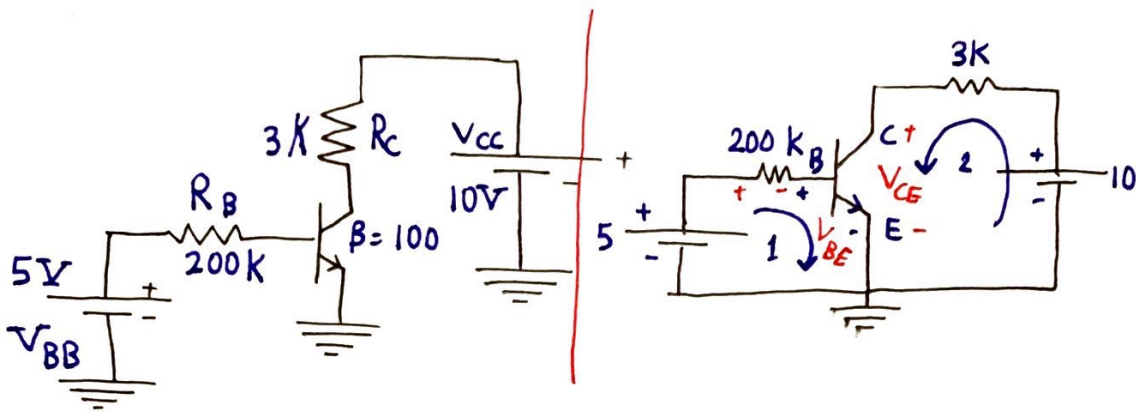 3K
R_C
V_CC
10V
+
-
R_B
200K
β=100
5V
+
-
V_BB
3K
200K
B
C +
V_CE
E -
+ -
+
V_BE
-
1
2
5
+
-
+
-
10